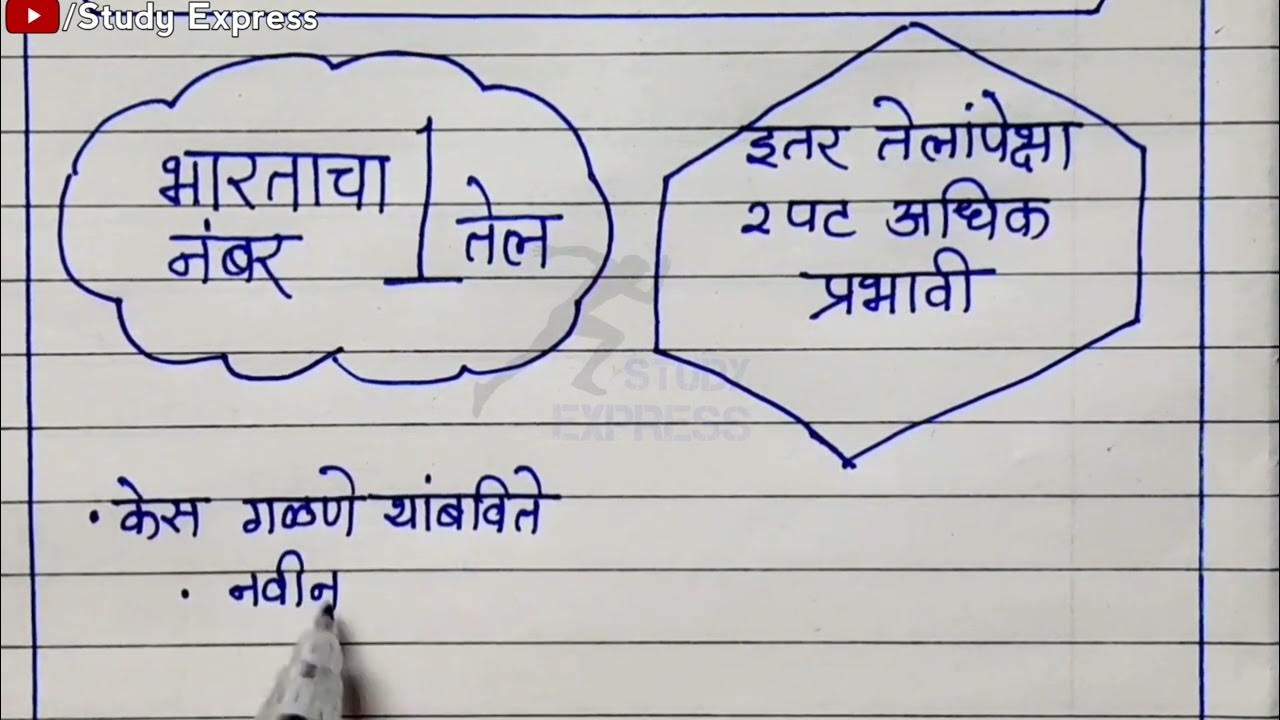 /Study Express
भारताचा
नंबर 1 तेल
इतर तेलांपेक्षा
२पट अधिक
प्रभावी
STUDY
EXPRESS
· केस गळणे थांबविते
· नवीन